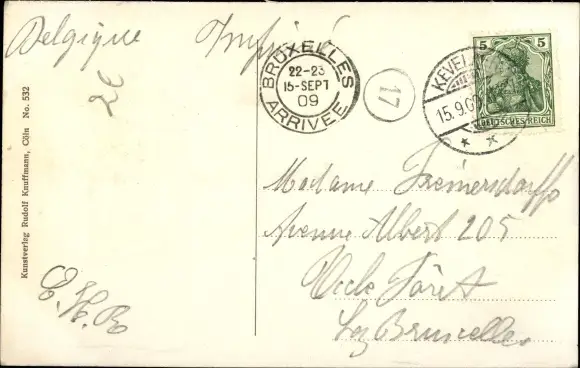 Belgique Imprimé
BRUXELLES
22-23
15-SEPT
09
ARRIVEE
17
KEVEL
15.9.09
5 5
DEUTSCHES REICH
Kunstverlag Rudolf Knuffmann, Cöln No. 532
E.H.B
Madame
Avenue Albert 205
Forêt
Lez Bruxelles